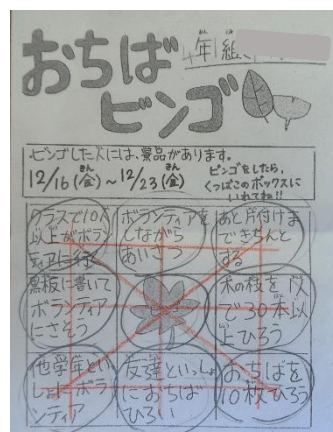 4年 組
おちば
ビンゴ
ビンゴした人には、景品があります。
12/16(金)~12/23(金)
きん
きん
ビンゴをしたら、
くつばこのボックスに
いれてね!!
クラスで10人
以上がボラン
ティアに行く
ボランティアを
しながら
あいさつ
あと片付けま
できちんと
する
黒板に書いて
ボランティア
にさそう
木の枝を1人
で30本以
上ひろう
他学年とい
しょにボラ
ンティア
友達といっしょ
におちば
ひろい
おちばを
10枚ひろう